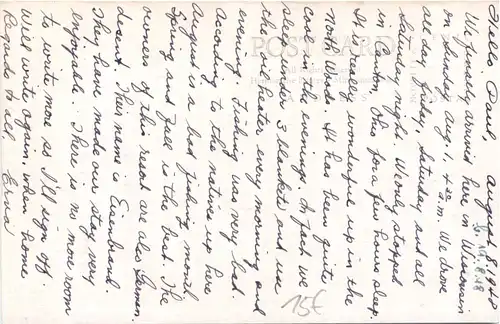 August 8, 1948
Hello, Paul,
We finally arrived here in Wisconsin
on Sunday Aug. 1, 4:30 a.m. We drove
all day Friday, Saturday and all
Saturday night. We only stopped
in Canton, Ohio for a few hours sleep.
It is really wonderful up in the
North Woods. It has been quite
cool in the evenings. In fact we
sleep under 3 blankets and use
the heater every morning and
evening. Fishing was very bad.
According to the natives up here
August is a bad fishing month
Spring and Fall is the best. The
owners of this resort are also German
descent. Their name is
They have made our stay very
enjoyable. There is no more room
to write more so I'll sign off.
Will write again, when home
Regards to all,
Erna
POST CARD
15€